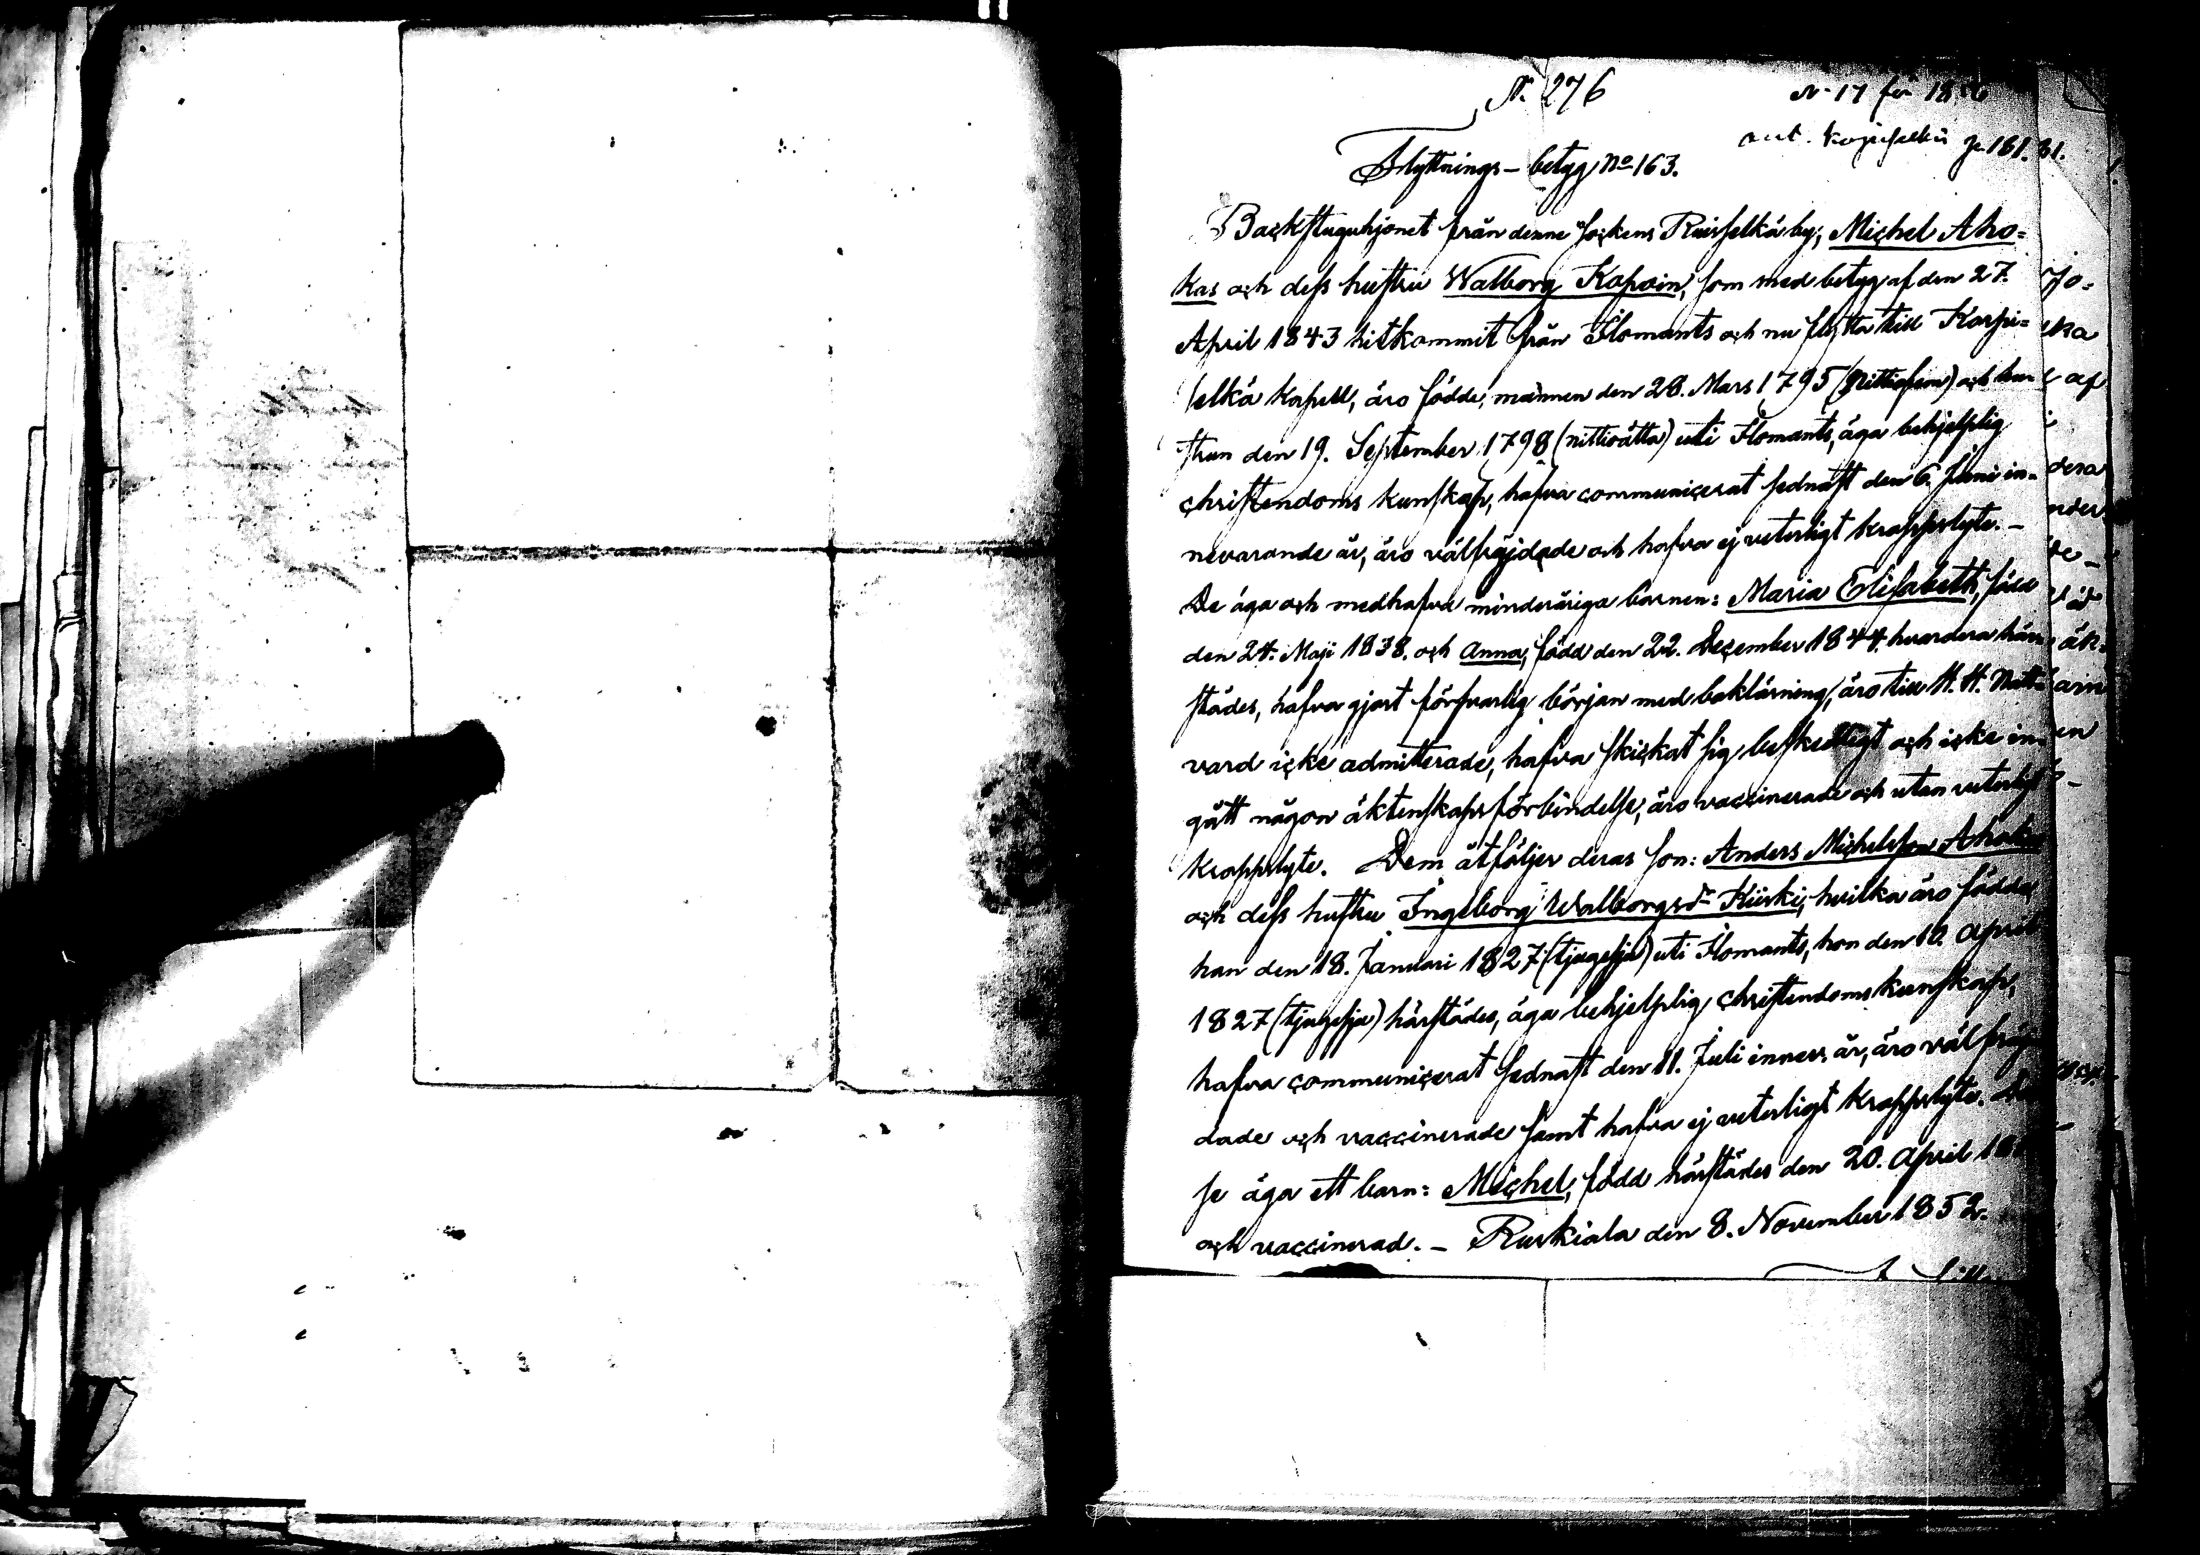 N. 276
N. 17 för 18
ant. p. 181.
Flyttnings-betyg No 163.
Backstuguhjonet från denne sockens Ruisselkä by, Michel Aho=
kas och dess hustru Walborg Kapain, som med betyg af den 27.
April 1843 hitkommit från Ilomants och nu flytta till Korpi=
selkä kapell, äro födde, mannen den 28. Mars 1795 (nittiofem) och hu-
strun den 19. September 1798 (nittioåtta) uti Ilomants, äga behjelplig
christendoms kunskap, hafva communicerat sednast den 6. Juni in-
nevarande år, äro välfräjdade och hafva ej veterligt kroppslyte. –
De äga och medhafva minderåriga barnen: Maria Elisabeth, född
den 24. Maji 1838. och Anna, född den 22. December 1844. hvardera här-
städes, hafva gjort försvarlig början med boklärning, äro till H. H. Natt-
vard icke admitterade, hafva skickat sig beskedligt och icke in-
gått någon äktenskapsförbindelse, äro vaccinerade och utan veterligt
kroppslyte. Dem åtföljer deras son: Anders Michelsson
och dess hustru Ingeborg Walborgsdr Kiiski, hvilka äro födda,
han den 18. Januari 1827 (tjugosju) uti Ilomants, hon den 10. April
1827 (tjugosju) härstädes, äga behjelplig christendoms kunskap,
hafva communicerat sednast den 11. Juli innev. år, äro välfräj-
dade och vaccinerade samt hafva ej veterligt kroppslyte.
se äga ett barn: Michel, född härstädes den 20. April
och vaccinerad. – Ruskiala den 8. November 1852.